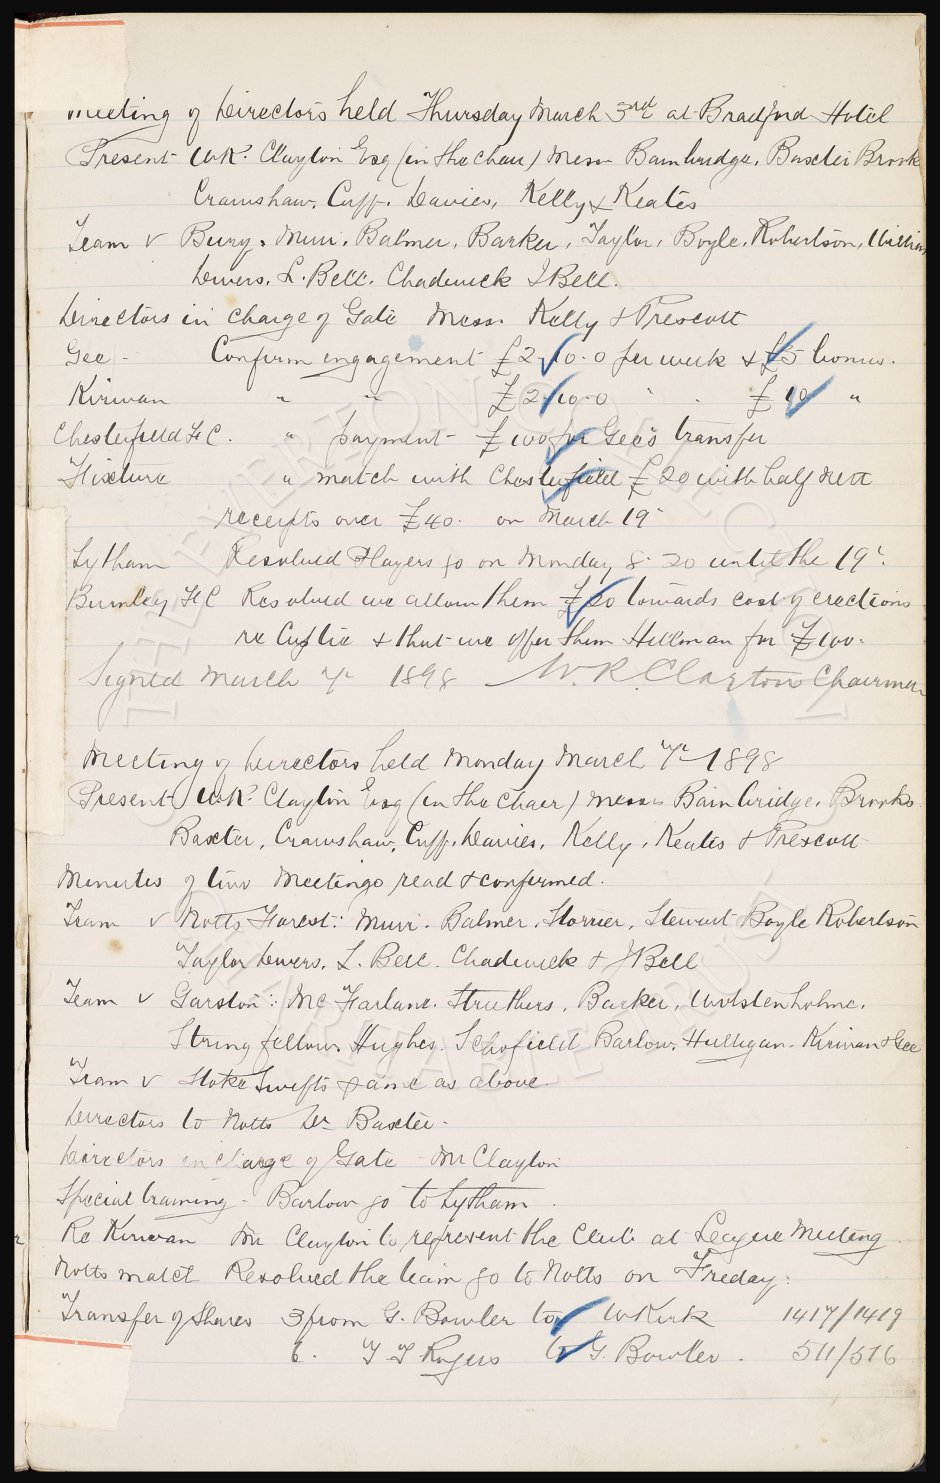 Meeting of Directors held Thursday March 3rd at Bradford Hotel
Present W.R. Clayton Esq (in the chair) Messrs Bainbridge, Baxter Brook
Crawshaw, Cuff, Davies, Kelly & Keates
Team v Bury. Muir, Balmer, Barker, Taylor, Boyle, Robertson, William
Divers, L. Bell, Chadwick J Bell.
Directors in charge of Gate Messrs Kelly & Prescott
Gee - Confirm engagement £2-10-0 per week & £5 bonus.
Kirwan " " £2-10-0 " " £10 "
Chesterfield F C. " payment - £100 for Gee's transfer
Fixture " match with Chesterfield £20 with half nett
receipts over £40. on March 19
Lytham Resolved Players go on Monday 8.20 until the 19th.
Burnley F C Resolved we allow them £20 towards cost of erections
re Cup tie & that we offer them Hillman for £100.
Signed March 7th 1898 W.R. Clayton Chairman
Meeting of Directors held Monday March 7th 1898
Present W.R. Clayton Esq (in the chair) Messrs Bainbridge, Brooks
Baxter, Crawshaw, Cuff, Davies, Kelly, Keates & Prescott
Minutes of two Meetings read & confirmed.
Team v Notts Forest: Muir. Balmer, Storrier, Stewart Boyle Robertson
Taylor Divers, L. Bell. Chadwick & J Bell
Team v Garston: McFarlane. Struthers, Barker, Wolstenholme,
Stringfellow, Hughes. Schofield Barlow, Hulligan. Kirwan & Gee
Team v Stoke Swifts same as above.
Directors to Notts Dr Baxter.
Directors in charge of Gate - Mr Clayton
Special training - Barlow go to Lytham.
Re Kirwan Mr Clayton to represent the Club at League Meeting.
Notts match Resolved the team go to Notts on Friday.
Transfer of Shares 3 from G. Bowler to W Kirk 1417/1419
6. T T Rogers to G. Bowler. 511/516
THE EVERTON COLLECTION
CHARITABLE TRUST